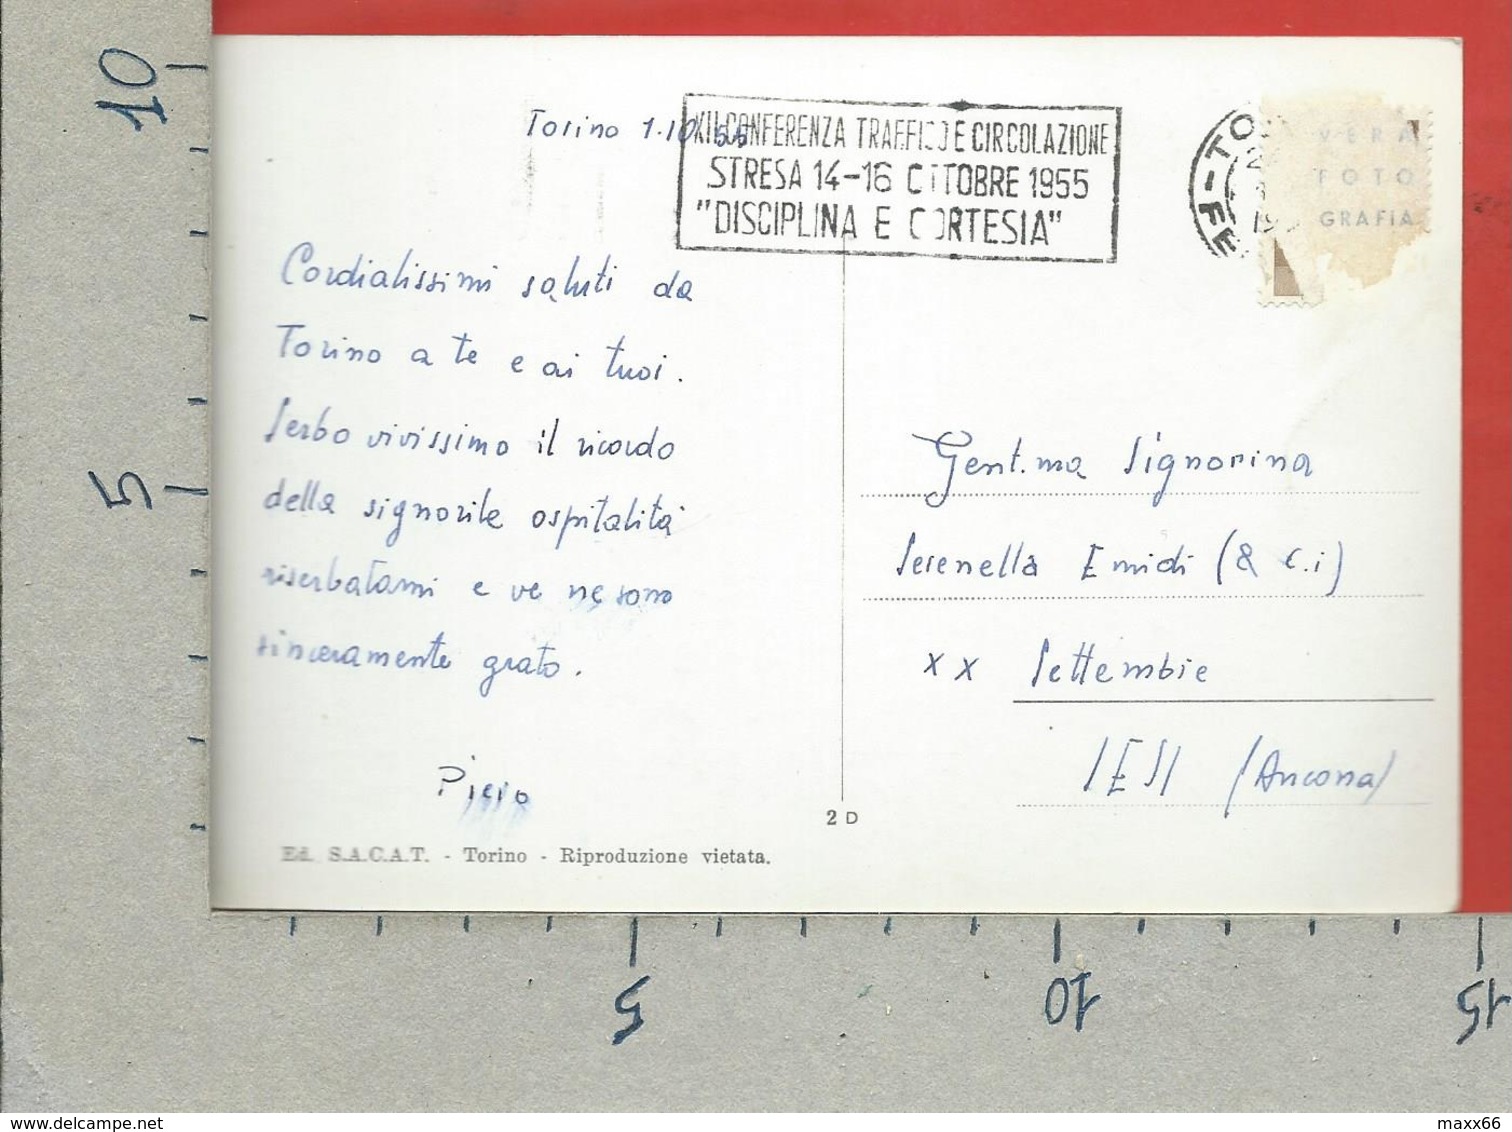 10
5
5
10
15
Torino 1.10.55
XII CONFERENZA TRAFFICO E CIRCOLAZIONE
STRESA 14-16 OTTOBRE 1955
"DISCIPLINA E CORTESIA"
TO
FE
VERA
FOTO
GRAFIA
Cordialissimi saluti da
Torino a te e ai tuoi.
Serbo vivissimo il ricordo
della signorile ospitalità
riserbatami e ve ne sono
sinceramente grato.
Piero
Gent.ma Signorina
Serenella Emidi (& C.i)
XX Settembre
IESI (Ancona)
2 D
Ed. S.A.C.A.T. - Torino - Riproduzione vietata.
delcampe.net
maxx66